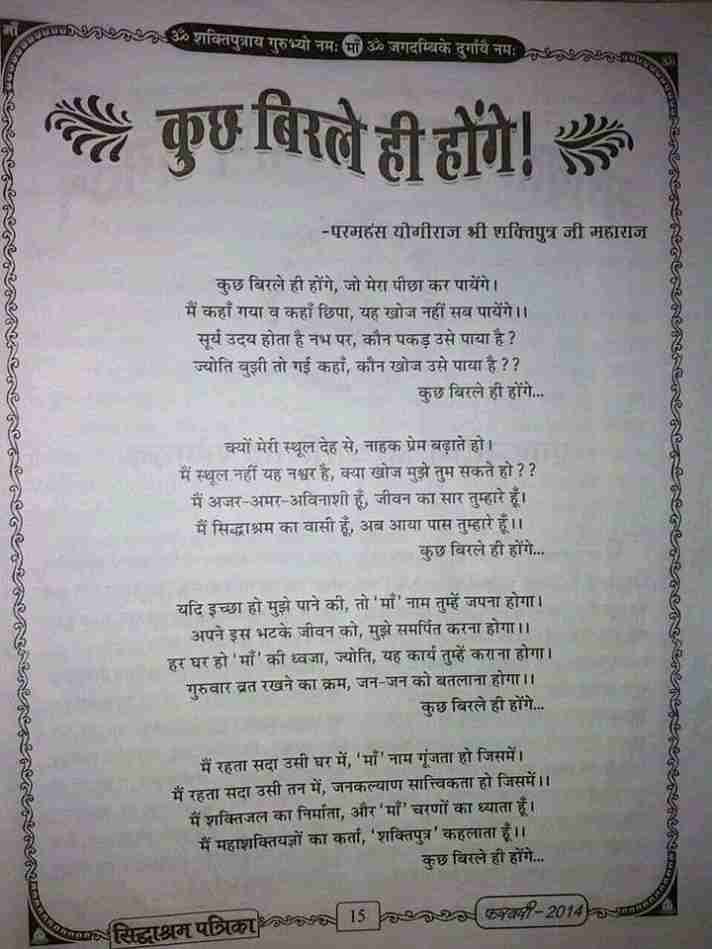 माँ
ॐ
ॐ शक्तिपुत्राय गुरुभ्यो नमः माँ ॐ जगदम्बिके दुर्गायै नमः
कुछ बिरले ही होंगे!
-परमहंस योगीराज श्री शक्तिपुत्र जी महाराज
कुछ बिरले ही होंगे, जो मेरा पीछा कर पायेंगे।
मैं कहाँ गया व कहाँ छिपा, यह खोज नहीं सब पायेंगे।।
सूर्य उदय होता है नभ पर, कौन पकड़ उसे पाया है?
ज्योति बुझी तो गई कहाँ, कौन खोज उसे पाया है??
कुछ बिरले ही होंगे...
क्यों मेरी स्थूल देह से, नाहक प्रेम बढ़ाते हो।
मैं स्थूल नहीं यह नश्वर है, क्या खोज मुझे तुम सकते हो??
मैं अजर-अमर-अविनाशी हूँ, जीवन का सार तुम्हारे हूँ।
मैं सिद्धाश्रम का वासी हूँ, अब आया पास तुम्हारे हूँ।।
कुछ बिरले ही होंगे...
यदि इच्छा हो मुझे पाने की, तो 'माँ' नाम तुम्हें जपना होगा।
अपने इस भटके जीवन को, मुझे समर्पित करना होगा।।
हर घर हो 'माँ' की ध्वजा, ज्योति, यह कार्य तुम्हें कराना होगा।
गुरुवार व्रत रखने का क्रम, जन-जन को बतलाना होगा।।
कुछ बिरले ही होंगे...
मैं रहता सदा उसी घर में, 'माँ' नाम गूंजता हो जिसमें।
मैं रहता सदा उसी तन में, जनकल्याण सात्त्विकता हो जिसमें।।
मैं शक्तिजल का निर्माता, और 'माँ' चरणों का ध्याता हूँ।
मैं महाशक्तियज्ञों का कर्ता, 'शक्तिपुत्र' कहलाता हूँ।।
कुछ बिरले ही होंगे...
सिद्धाश्रम पत्रिका
15
फरवरी-2014